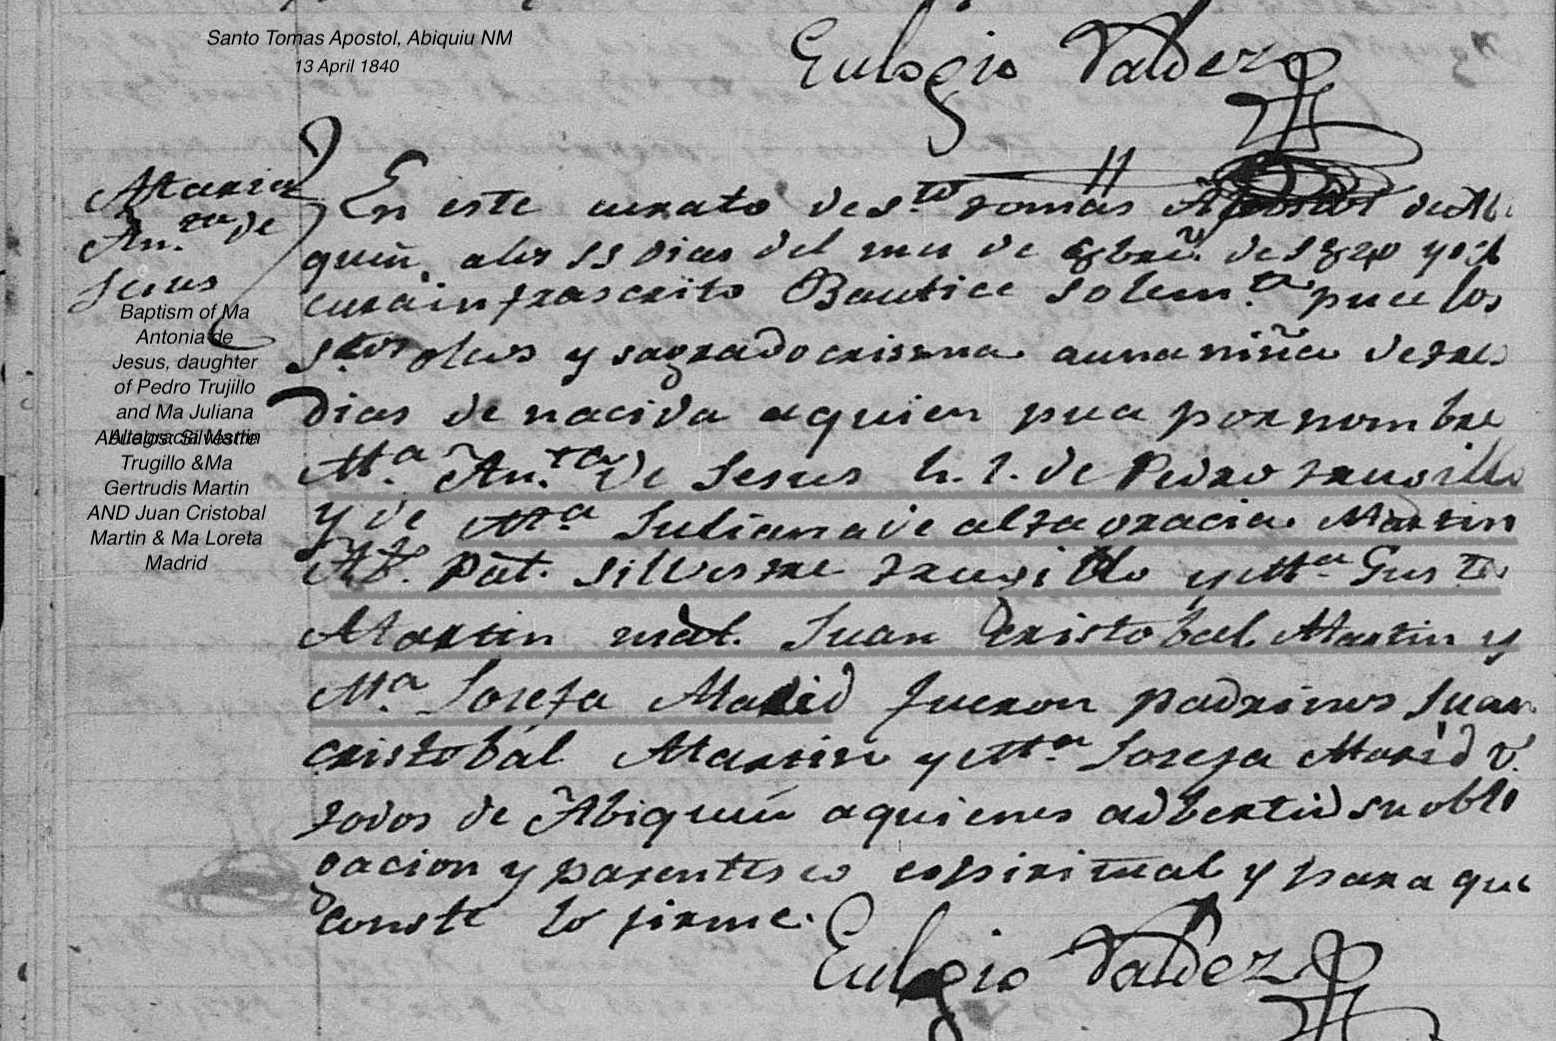 Santo Tomas Apostol, Abiquiu NM
13 April 1840
Eulogio Valdez
Maria
An.ta de
Jesus
Baptism of Ma
Antonia de
Jesus, daughter
of Pedro Trujillo
and Ma Juliana
Altagracia Martin
Abuelos: Silvestre
Trugillo &Ma
Gertrudis Martin
AND Juan Cristobal
Martin & Ma Loreta
Madrid
En este curato de S.to Tomas Apostol de Abi
quiú, a los dias del mes de de 1840 yo el
cura infrascrito Bautice Solem.te puce los
S.tos oleos y sagrado crisma a una niña de tres
dias de nacida a quien puce por nombre
M.a An.ta de Jesus h. l. de Pedro Trugillo
y de M.a Juliana de altagracia Martin
Ab. Pat. Silvestre Trugillo y M.a Gers
Martin mat. Juan Cristobal Martin y
M.a Loreta Madrid fueron padrinos Juan
Cristobal Martin y M.a Loreta Madrid v.
todos de Abiquiú a quienes adberti su obli
gacion y parentesco espiritual y para que
conste lo firme.
Eulogio Valdez